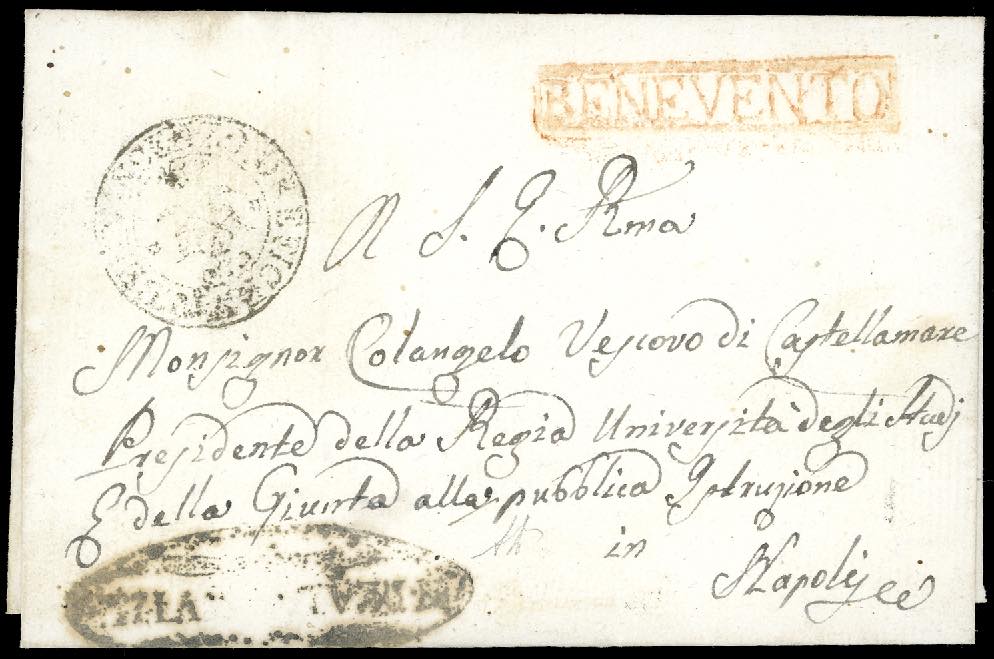 BENEVENTO
A S. E. Rma
Monsignor Colangelo Vescovo di Castellamare
Presidente della Regia Università degli Studj
E della Giunta alla pubblica Istruzione
in
Napoli